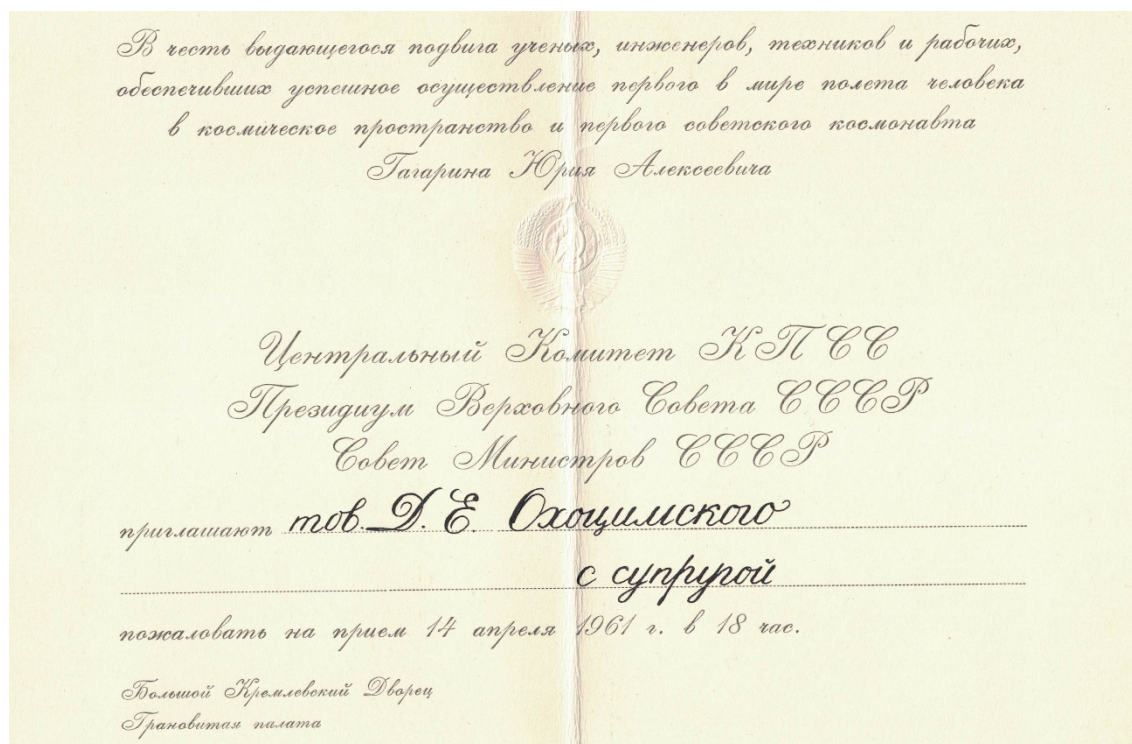 В честь выдающегося подвига ученых, инженеров, техников и рабочих,
обеспечивших успешное осуществление первого в мире полета человека
в космическое пространство и первого советского космонавта
Гагарина Юрия Алексеевича
Центральный Комитет КПСС
Президиум Верховного Совета СССР
Совет Министров СССР
приглашают тов. Д. Е. Охоцимского
с супругой
пожаловать на прием 14 апреля 1961 г. в 18 час.
Большой Кремлевский Дворец
Грановитая палата